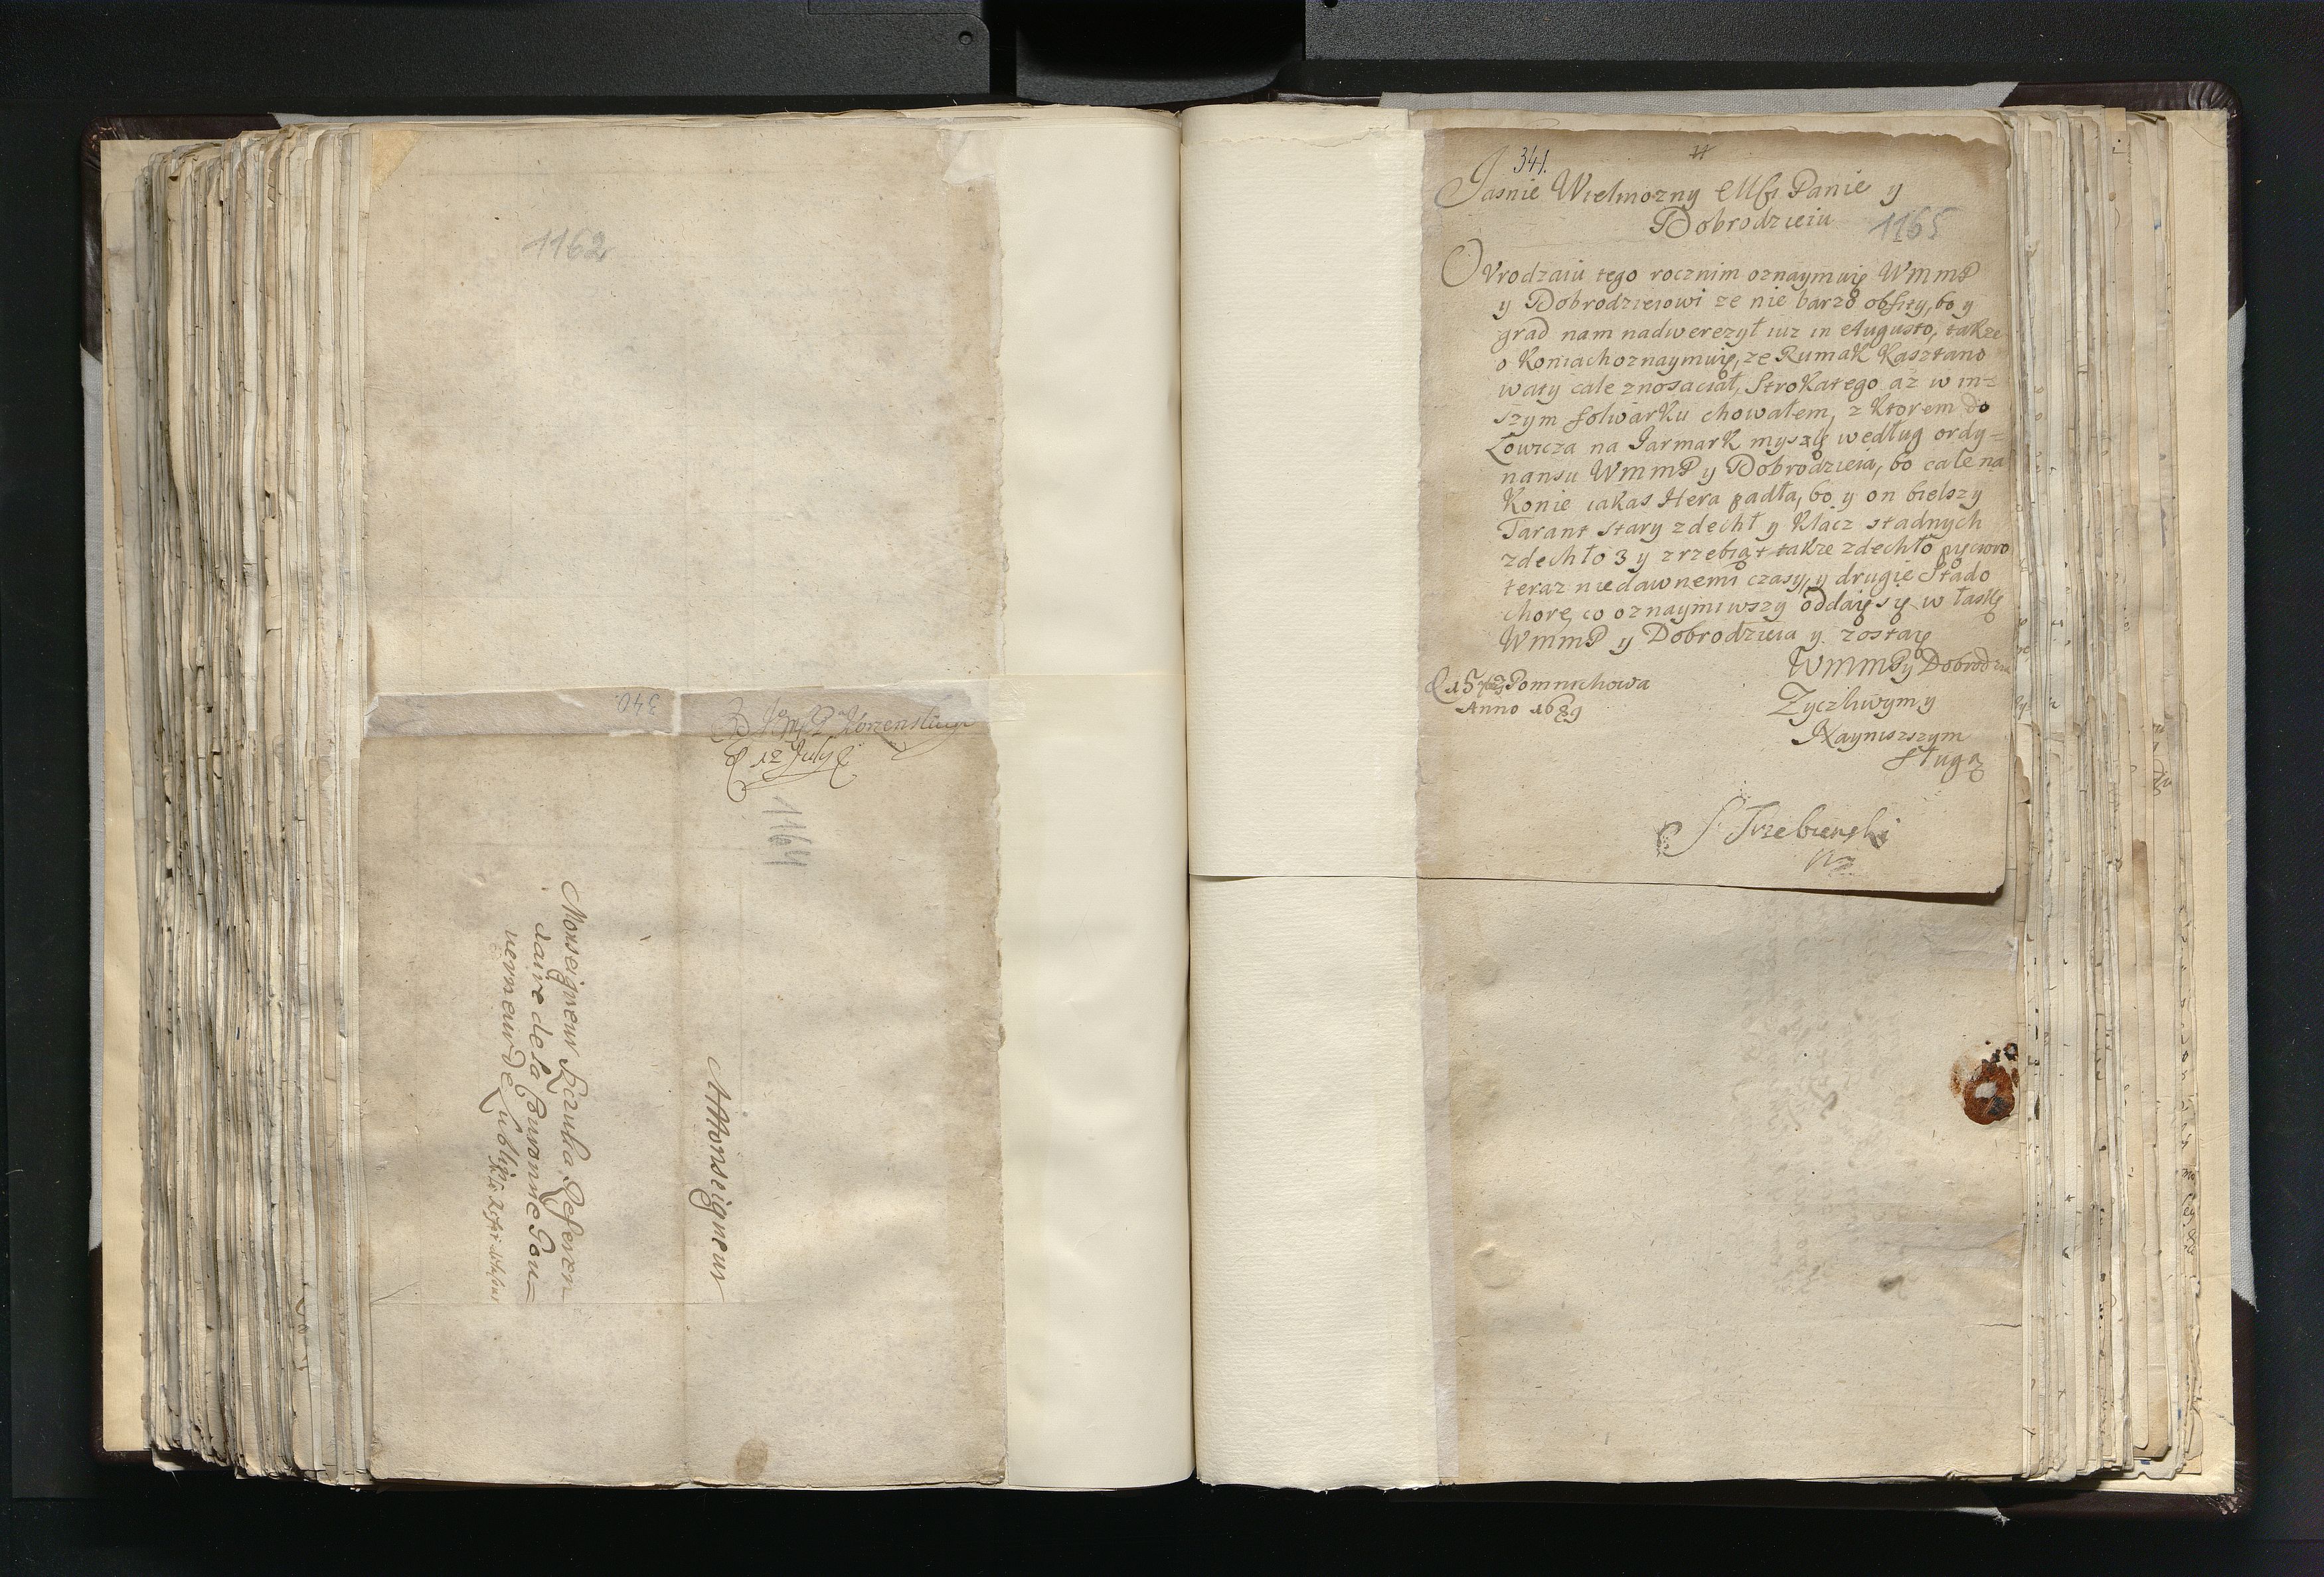 1162
340.
12 July
1164
Monseigneur
Monseigneur Szczuka, Referen
daire de la Couronne Gou=
verneur De
341.
Jasnie Wielmozny Msci Panie y
Dobrodzieiu
1165
O Vrodzaiu tego rocznim oznaymuię WmmP
y Dobrodzieiowi ze nie barzo obfity, bo y
grad nam nadwerezył iuz in Augusto, takze
o Koniach oznaymuię, ze Rumak Kasztano
waty cale znosaciał, Strokatego az w in=
szym folwarku chowałem, z ktorem do
Łowicza na Jarmark myszlę według ordy=
nansu WmmP y Dobrodzieia, bo cale na
Konie iakas Hera padła, bo y on bielszy
Tarant stary zdechł y klacz stadnych
zdechło 3 y zrzebiąt takze zdechło
teraz niedawnemi czasy, y drugie Stado
chore, co oznaymiwszy oddaię się w łaskę
WmmP y Dobrodzieia y zostaię
WmmP y Dobrodzia
Zyczliwym y
Naynizszym
sługą
D 15 Pomnichowa
Anno 1689
S Trzebienski